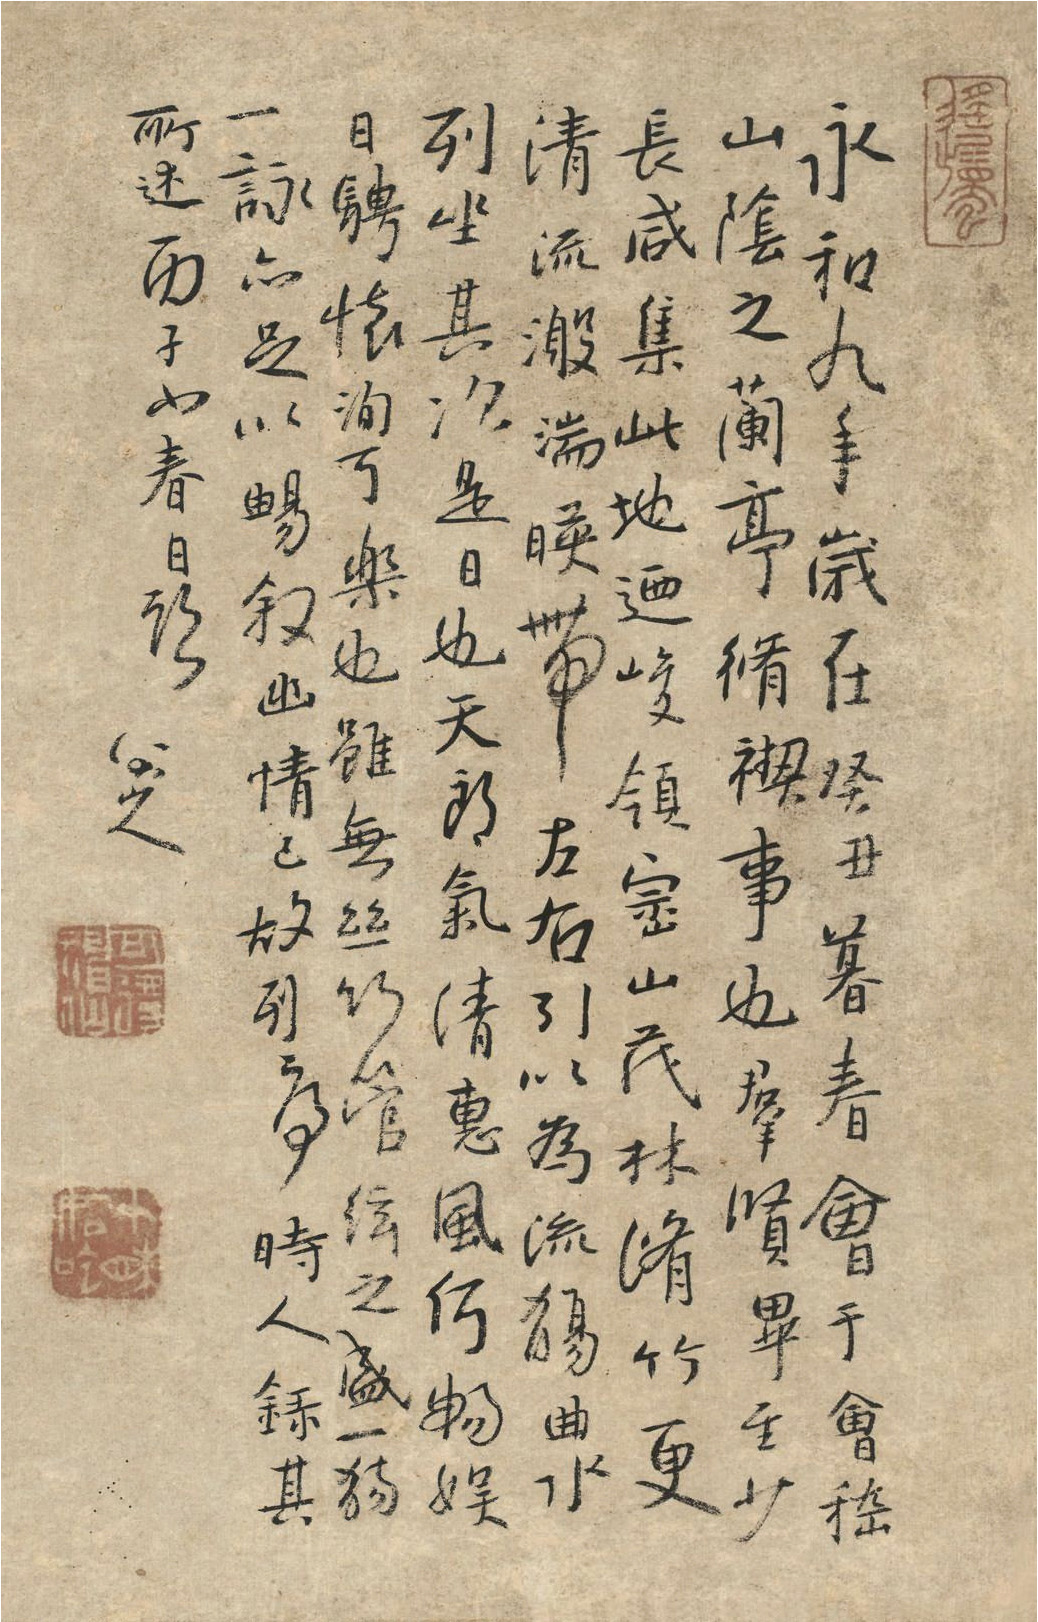 永和九年歲在癸丑暮春會于會稽
山陰之蘭亭脩禊事也羣賢畢至少
長咸集此地迺峻領崇山茂林脩竹更
清流激湍暎帶左右引以為流觴曲水
列坐其次是日也天朗氣清惠風何暢娛
日騁懷洵可樂也雖無絲竹管絃之盛一觴
一詠亦足以暢叙幽情已故列序時人錄其
所述丙子小春日題
八大山人
可得神仙